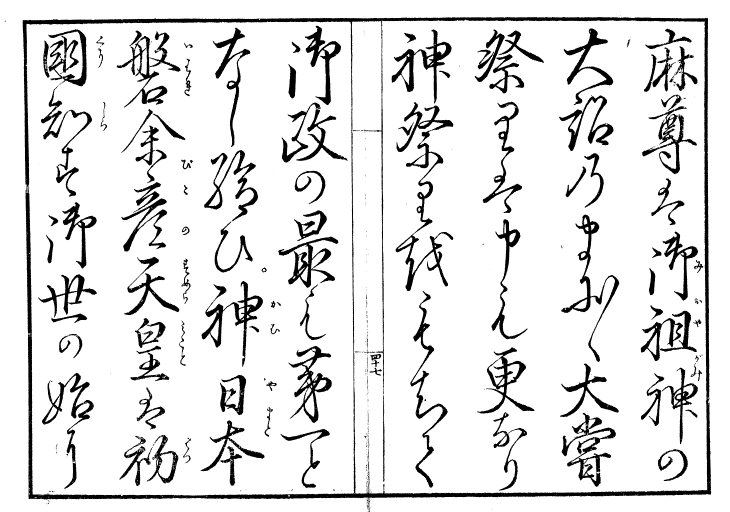 麻尊は御祖神の
大詔乃まに〱大嘗
祭りは申も更なり
神祭りをもちて
四十七
御政の最も第一と
なし給ひ。神日本
磐余彦天皇は初
國知す御世の始り